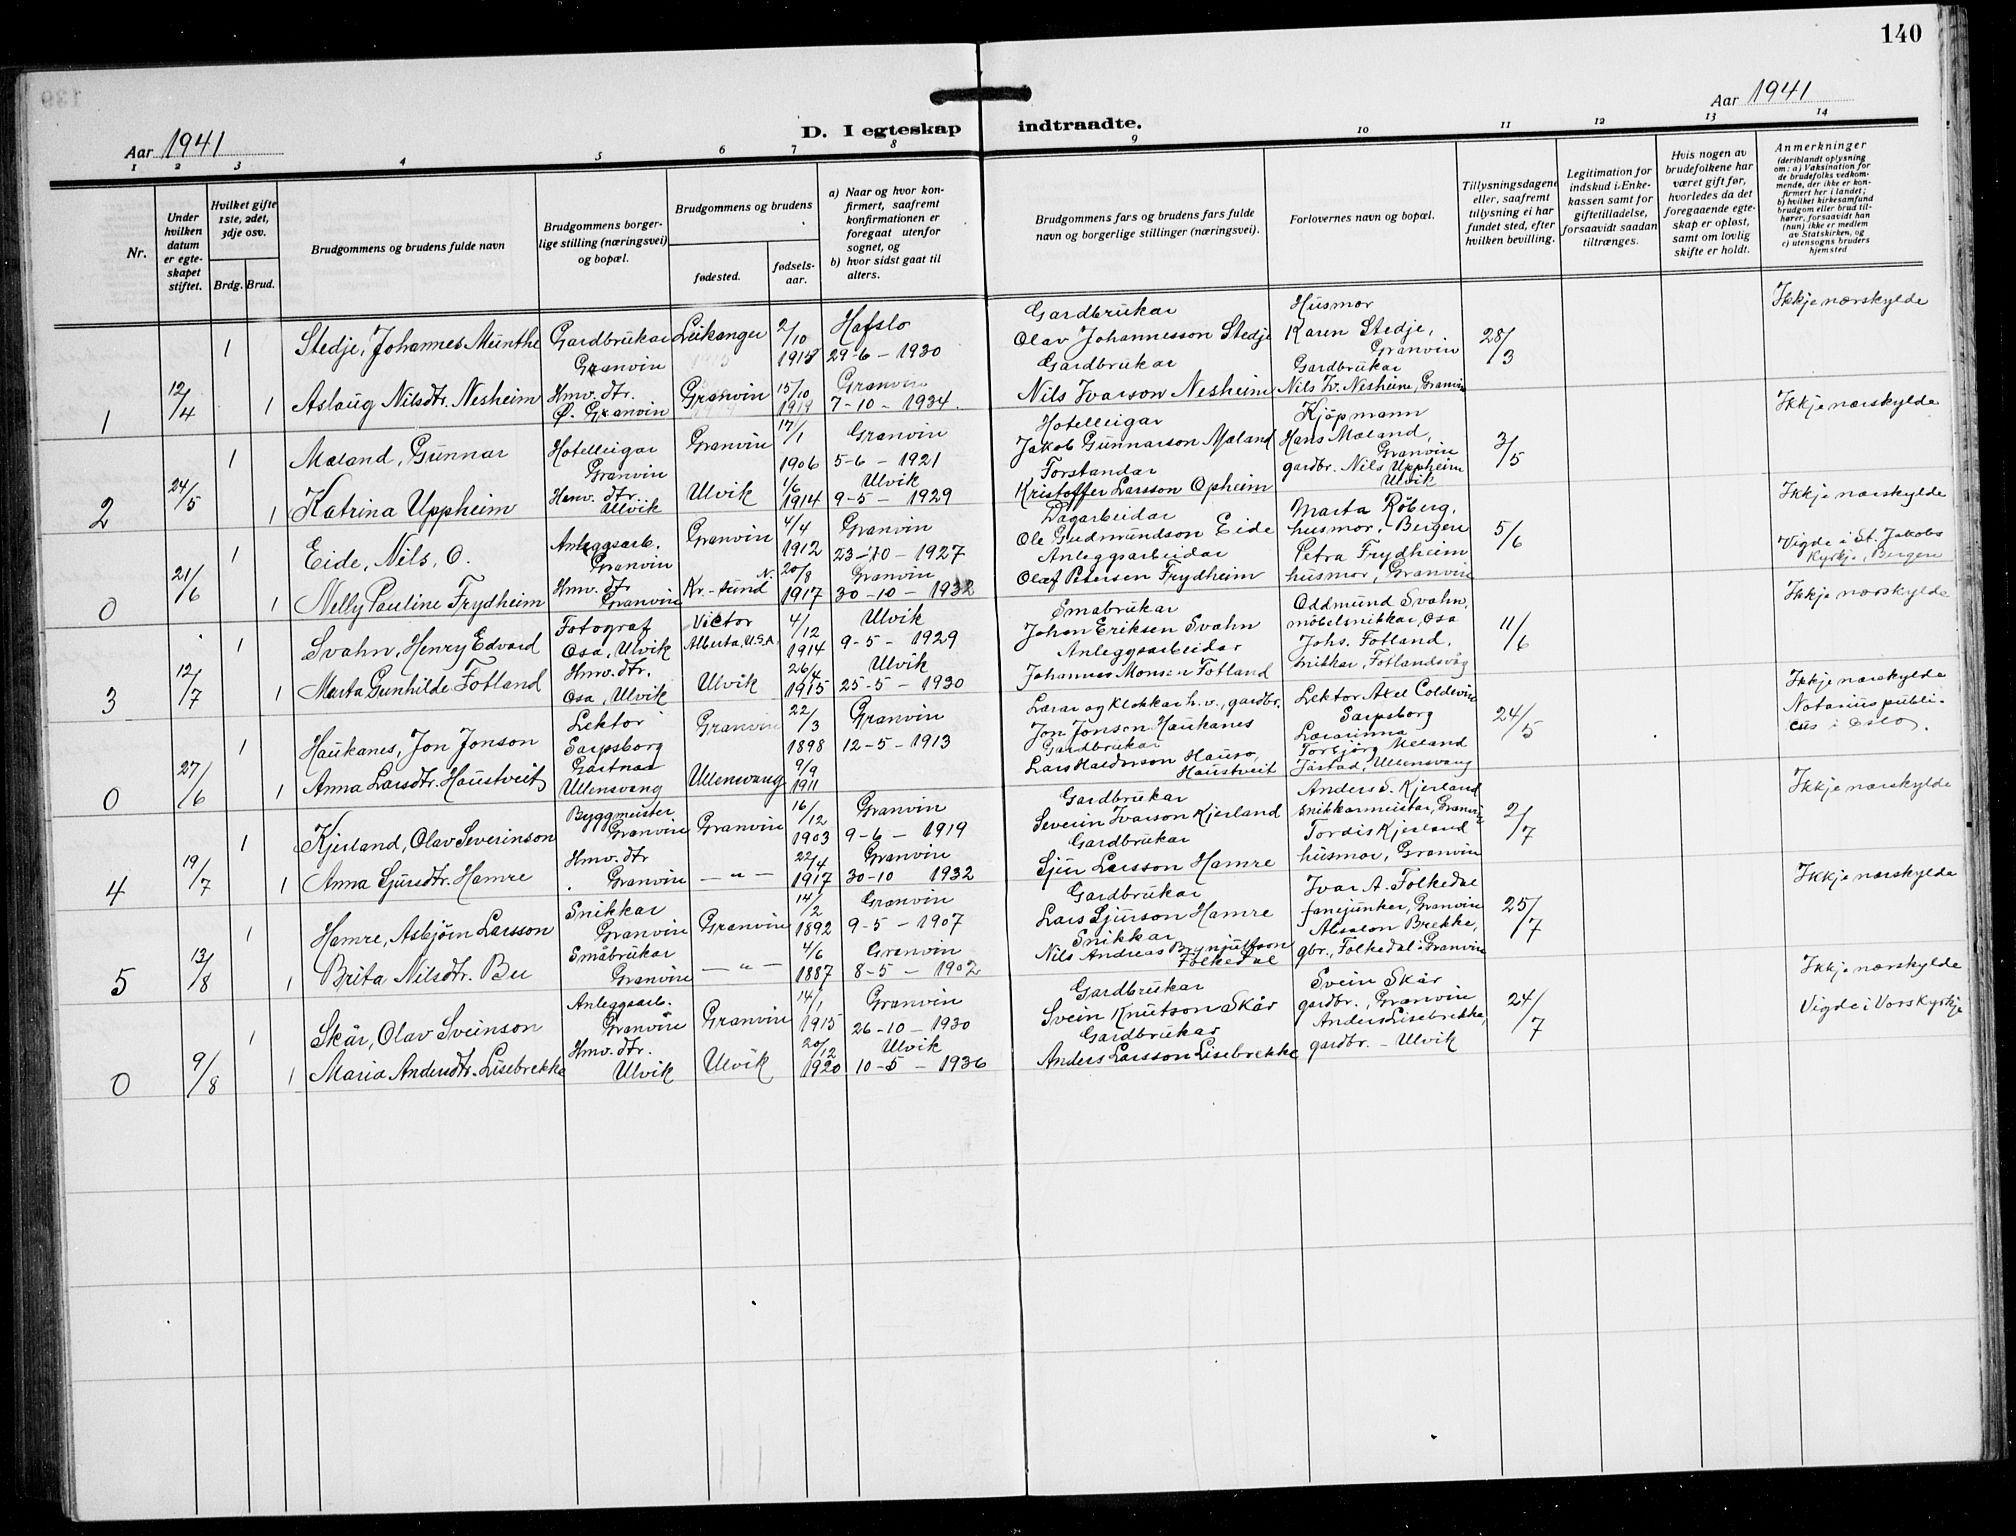 140
Aar 1941
Aar 1941
D. I egteskap indtraadte.
1 2 3 4 5 6 7 8 9 10 11 12 13 14
Nr.
Under hvilken datum er egteskapet stiftet.
Hvilket gifte 1ste, 2det, 3dje osv.
Brdg. Brud.
Brudgommens og brudens fulde navn
Brudgommens borgerlige stilling (næringsvei) og bopæl.
Brudgommens og brudens
fødested.
fødselsaar.
a) Naar og hvor konfirmert, saafremt konfirmationen er foregaat utenfor sognet, og
b) hvor sidst gaat til alters.
Brudgommens fars og brudens fars fulde navn og borgerlige stillinger (næringsvei).
Forlovernes navn og bopæl.
Tillysningsdagene eller, saafremt tillysning ei har fundet sted, efter hvilken bevilling.
Legitimation for indskud i Enkekassen samt for giftetilladelse, forsaavidt saadan tiltrænges.
Hvis nogen av brudefolkene har været gift før, hvorledes da det foregaaende egteskap er opløst, samt om lovlig skifte er holdt.
Anmerkninger
(deriblandt oplysning om: a) Vaksination for de brudefolks vedkommende, der ikke er konfirmert her i landet; b) hvilket kirkesamfund brudgom eller brud tilhører, forsaavidt han (hun) ikke er medlem av Statskirken, og c) utensogns bruders hjemsted
1 12/4
1 Stedje, Johannes Munthe Gardbrukar Granvin Leikanger 2/10 1915 Hafslo 29-6-1930 Gardbrukar Olav Johannesson Stedje Husmor Karen Stedje, Granvin 28/3 Ikkje nærskylde
1 Aslaug Nilsdtr. Nesheim Hmv. dtr. Ø. Granvin Granvin 15/10 1919 Granvin 7-10-1934 Gardbrukar Nils Ivarson Nesheim Gardbrukar Nils Iv. Nesheim, Granvin
2 24/5
1 Mæland, Gunnar Hotelleigar Granvin Granvin 17/1 1906 Granvin 5-6-1921 Hotelleigar Jakob Gunnarson Mæland Kjøpmann Hans Mæland, Granvin 3/5 Ikkje nærskylde
1 Katrina Uppheim Hmv. dtr. Ulvik Ulvik 1/6 1914 Ulvik 9-5-1929 Forstandar Kristoffer Larsson Opheim gardbr. Nils Uppheim Ulvik
0 21/6
1 Eide, Nils, O. Anleggsarb. Granvin Granvin 4/4 1912 Granvin 23-10-1927 Dagarbeidar Ole Gudmundson Eide Marta Røberg, husmor, Bergen 5/6 Ikkje nærskylde
1 Nelly Pauline Frydheim Hmv. dtr Granvin Kr.-sund N. 20/8 1917 Granvin 30-10-1932 Anleggsarbeidar Olaf Petersen Frydheim Petra Frydheim husmor, Granvin Vigde i St. Jakobs Kyrkje, Bergen
3 12/7
1 Svahn, Henry Edvard Fotograf Osa, Ulvik Victor Alberta, U.S.A. 4/12 1914 Ulvik 9-5-1929 Småbrukar Johan Eriksen Svahn Oddmund Svahn, møbelsnikkar, Osa 11/6 Ikkje nærskylde
1 Marta Gunhilde Fotland Hmv. dtr. Osa, Ulvik Ulvik 26/4 1915 Ulvik 25-5-1930 Anleggsarbeidar Johannes Monsen Fotland Johs. Fotland, snikkar, Fotlandsvåg
0 27/6
1 Haukanes, Jon Jonson Lektor Sarpsborg Granvin 22/3 1898 Granvin 12-5-1913 Lærar og klokkar h. v., gardbr. Jon Jonson Haukanes Lektor Axel Coldevin Sarpsborg 24/5 Ikkje nærskylde
1 Anna Larsdtr. Haustveit Gartnar Ullensvang Ullensvang 9/9 1911 Gardbrukar Lars Haldorson Hauso, Haustveit Lærarinna Torbjørg Mæland Jåstad, Ullensvang Notarius publicus i Oslo.
4 19/7
1 Kjerland, Olav Severinson Byggmeister Granvin Granvin 16/12 1903 Granvin 9-6-1919 Gardbrukar Severin Ivarson Kjerland Anders S. Kjerland snikkarmeistar, Granvin 2/7 Ikkje nærskylde
1 Anna Sjursdtr. Hamre Hmv. dtr Granvin —"— 22/4 1917 Granvin 30-10 1932 Gardbrukar Sjur Larsson Hamre Tordis Kjerland husmor, Granvin
5 13/8
1 Hamre, Asbjørn Larsson Snikkar Granvin Granvin 14/2 1892 Granvin 9-5-1907 Gardbrukar Lars Sjurson Hamre Ivar A. Folkedal fanejunker, Granvin 25/7 Ikkje nærskylde
1 Brita Nilsdtr. Bu Småbrukar Granvin —"— 4/6 1887 Granvin 8-5-1902 Snikkar Nils Andreas Brynjulfson Folkedal Absalon Brekke, gbr., Folkedal i Granvin
0 9/8
1 Skår, Olav Sveinson Anleggsarb. Granvin Granvin 14/1 1915 Granvin 26-10-1930 Gardbrukar Svein Knutson Skår Svein Skår gardbr., Granvin 24/7 Ikkje nærskylde
1 Maria Andersdtr. Lisebrekke Hmv. dtr. Ulvik Ulvik 20/12 1920 Ulvik 10-5-1936 Gardbrukar Anders Larsson Lisebrekke Anders Lisebrekke, gardbr. - Ulvik Vigde i Vorskyrkje